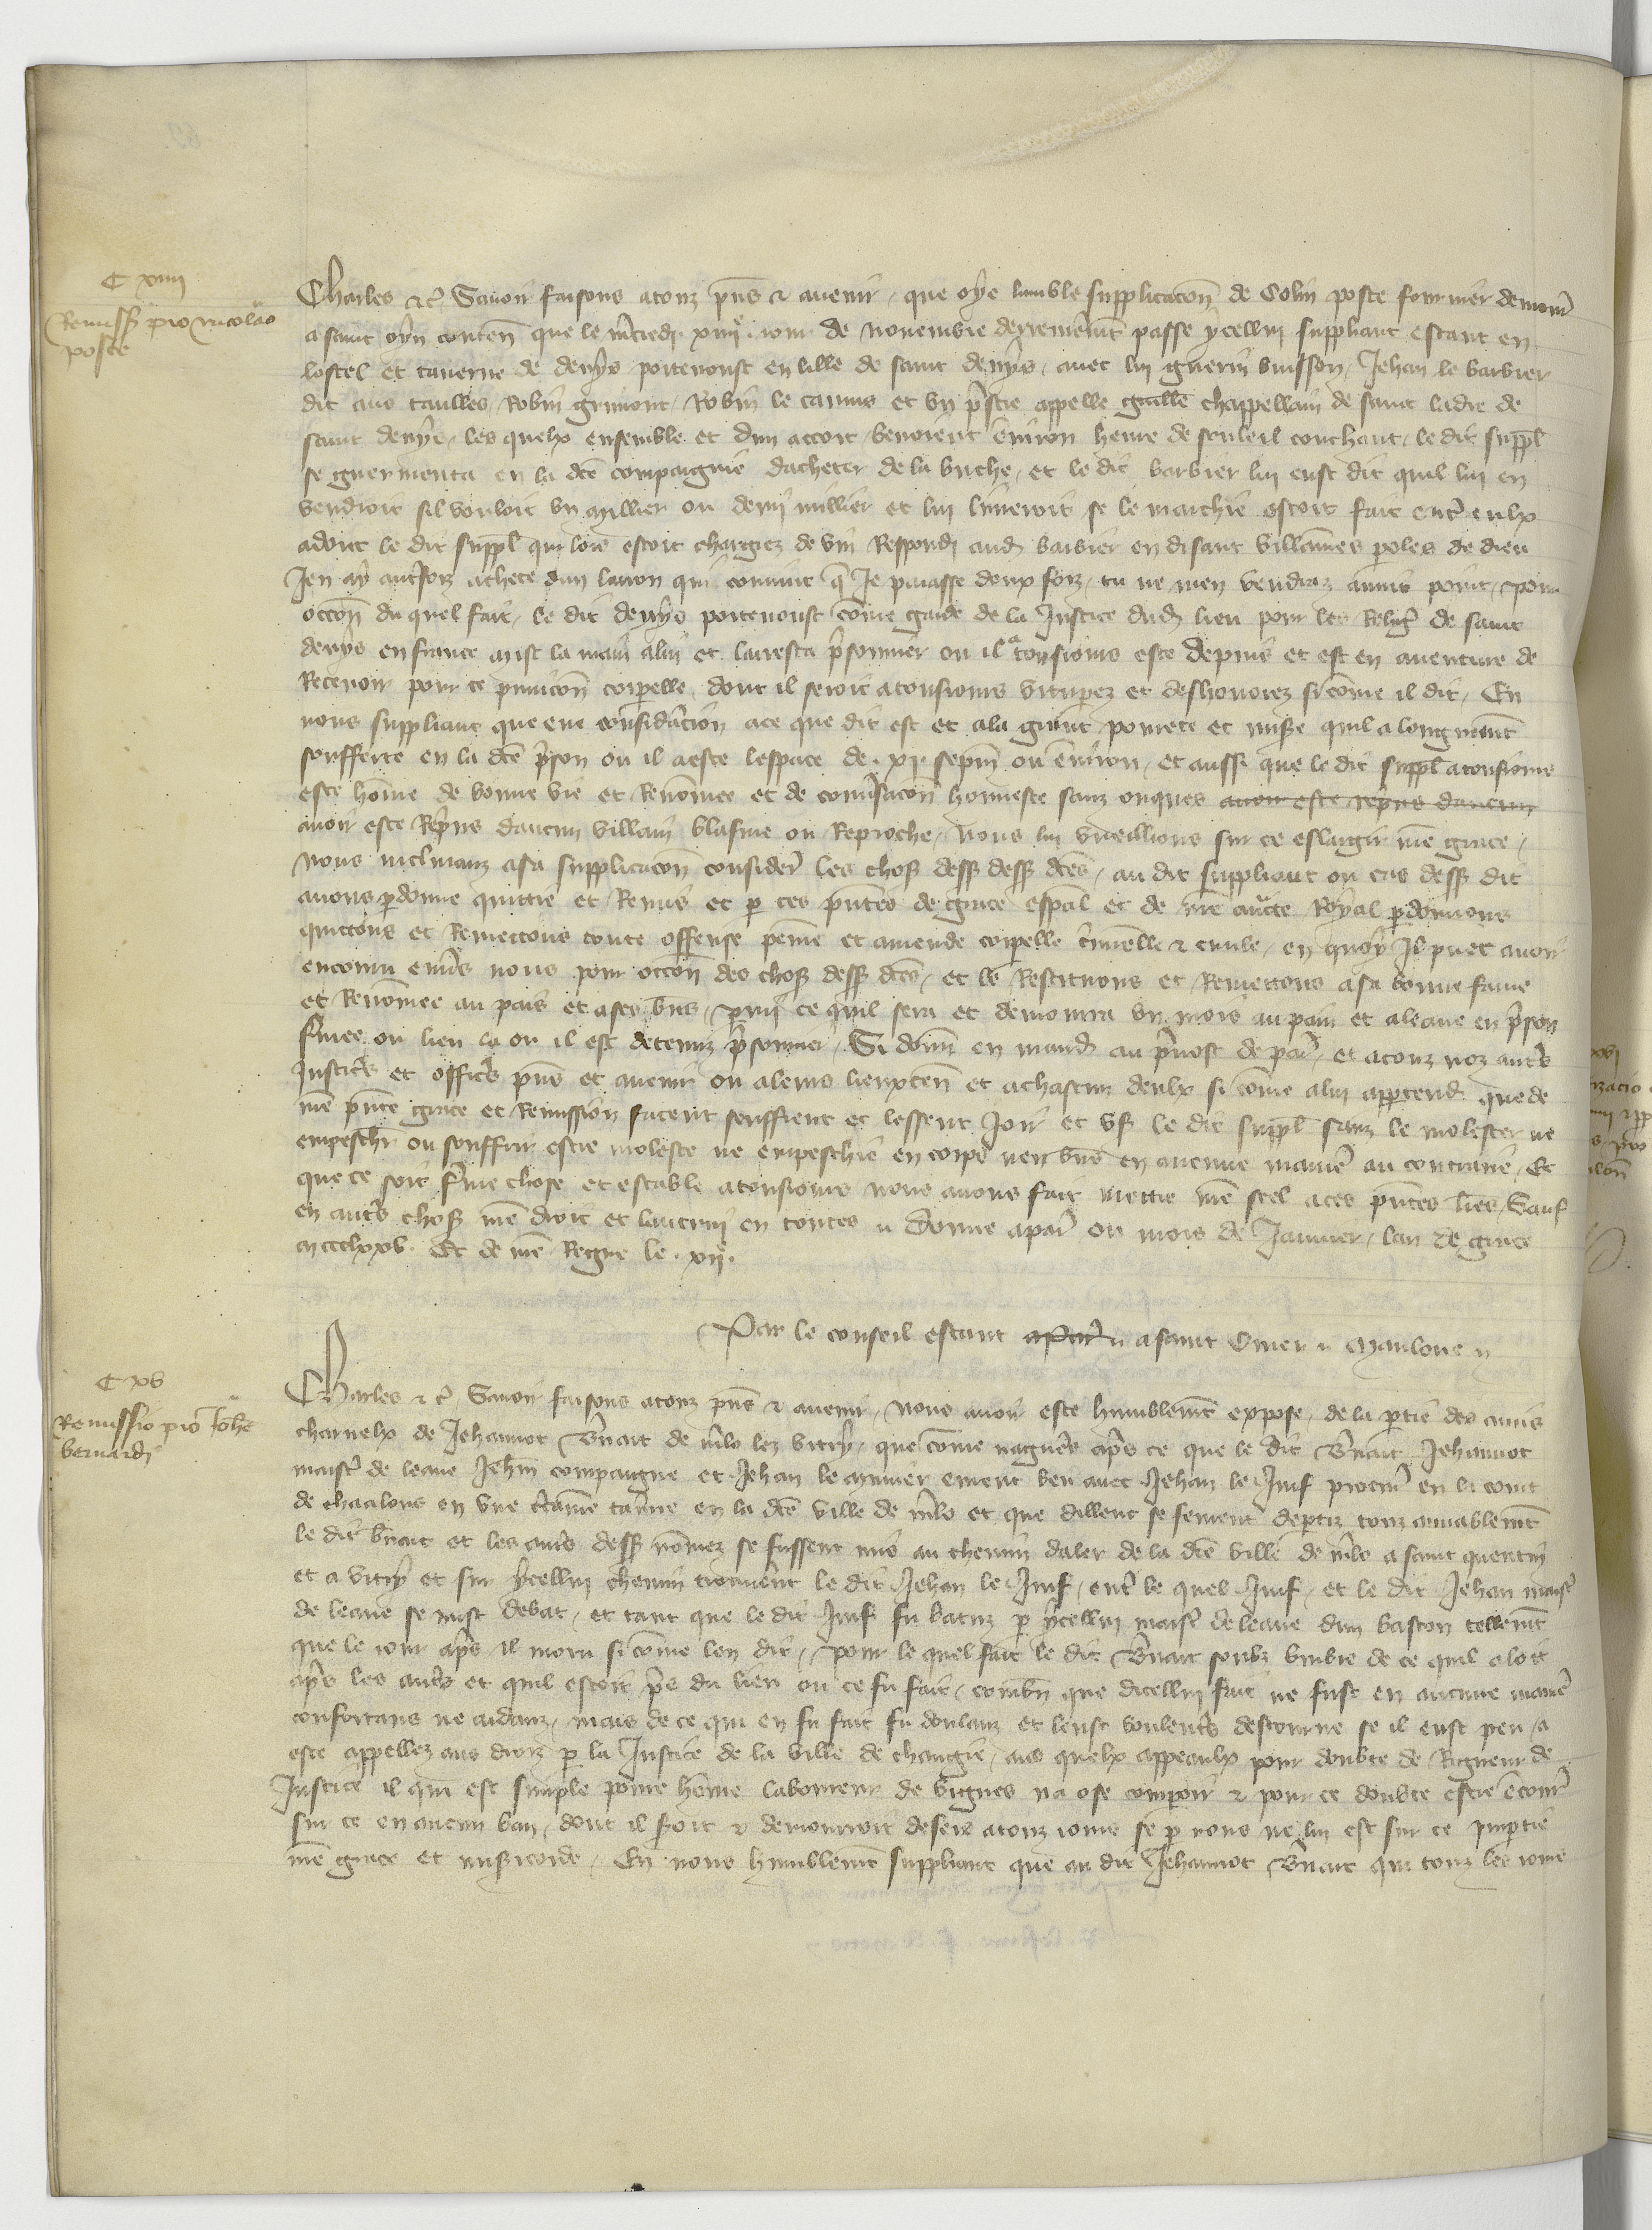 C xiiii
Remiss pro Nicolao
poste
Charles &c. Savoir faisons a touz pns & avenir, que oye lumble supplicacon de Colin poste fournier demour
a saint oyn conten que le mcredi xiiiie. jour de novembre derrenemt passe ycellui suppliant estant en
lostel et taverne de denys portenoust en lille de saint denys, avec lui guerin buisson, Jehan le barbier
dit aus taulles, Robin grimont, Robin le camus et un pstre appelle guille chappellain de saint ladre de
saint denys, les quelx ensemble et dun accort bevoient environ heure de souleil couchant, le dit suppl
se guermenta en la dce compaignie dacheter de la buche, et le dit barbier lui eust dit quil lui en
vendroit sil vouloit un millier ou demi millier et lui livreroit se le marchie estoit fait entr eulx
adonc le dit suppl qui lors estoit chargez de vin Respondi aud barbier en disant villaines poles de dieu
Jen ay autrfoiz achete dun larron qui convint q Je paiasse deux foiz, tu ne men vendras annuit point, pour
occon du quel fait, le dit denys portenoust come garde de la Justice dud lieu pour les Religr de saint
denys en france mist la main a lui et larresta prsonnier ou il a tousjours este depuis et est en aventure de
Recevoir pour ce punicon corpelle, dont il seroit a tousjours vituperez et deshonorez si come il dit, En
nous suppliant que eue considracion a ce que dit est et a la grant povrete et misere quil a longuemt
soufferte en la dce prson ou il a este lespace de .xi. sepm ou environ, et aussi que le dit suppl a tousjours
este home de bonne vie et Renomee et de convsacon honneste sanz onques avoir este repris daucun
avoir este Repris daucun villain blasme ou Reproche, Nous lui vueillions sur ce eslargir nre grace,
Nous inclinanz a sa supplicacon considere les chos dess dess dces, au dit suppliant ou cas dess dit
avons pdonne quittie et Remis et p ces pntes de grace espal et de nre aucte Royal pdonnons
quittons et Remettons toute offense peine et amende corpelle crimelle & civile, en quoy Il puet avoir
encouru envs nous pour occon des chos dess dces, et le Restituons et Remettons a sa bonne fame
et Renomee au pais et a ses bns, pmi ce quil sera et demourra un mois au pain et a leaue en prson
fmee ou lieu la ou il est detenuz prsonnier, Si donn en mand au prvost de par, et a touz noz autrs
Justicrs et officrs pns et avenir ou a leurs lieuxten et a chascun deulx si come a lui appertend que de
nre pnte grace et Remission facent seuffrent et lessent Joir et us le dit suppl sanz le molester ne
empeschr ou souffrir estre moleste ne empeschie en corps nen bns en aucune manie au contraire, Et
que ce soit fme chose et estable a tousjours nous avons fait mettre nre scel a ces pntes lres, Sauf
en autrs chos nre droit et lautrui en toutes Donne a par ou mois de Janvier, lan de grace
mccclxxv. Et de nre Regne le .xiie.
Par le conseil estant a par a saint Omer Maulone
C xv
Remissio pro Johe
bernardi
Charles &c. Savoir faisons a touz pns & avenir, Nous avoir este humblemt expose, de la ptie des amis
charnelx de Jehannot Bnart de mlo lez vitry, que come nagueres aprs ce que le dit Bnart, Jehannot
maistr de leaue Jehn compaigne et Jehan le mimier eurent beu avec Jehan le Juif procur en la court
de chaalons en une crtaine tavrne en la dce ville de mlo et que dillent se feurent deptiz touz amiablemt
le dit bnart et les autrs dess nomez se fussent mis au chemin daler de la dce ville de mlo a saint quentin
et a vitry et sur ycellui chemin trouvernt le dit Jehan le Juif, entr le quel Juif, et le dit Jehan maistr
de leaue se mist debat, et tant que le dit Juif fu batuz p ycellui maistr de leaue dun baston tellemt
que le jour aprs il morut si come len dit, pour le quel fait le dit Bnart soubz umbre de ce quil aloit
aprs les autrs et quil estoit prs du lieu ou ce fu fait, combn que dicellui fait ne fust en aucune manie
confortans ne aidanz, mais de ce qui en fu fait fu doulanz et leust voulentrs destourne se il eust peu, a
este appellez aus droiz p la Justice de la ville de changie, aus quelx appeaulx pour doubte de Rigueur de
Justice il qui est simple povre home laboureur de vignes na ose comparoir & pour ce doubte estre encour
sur ce en aucun ban, dont il seroit & demourroit desers a touz jours se p nous ne lui est sur ce imptie
nre grace et misericorde, En nous humblemt suppliant que au dit Jehannot Bnart qui touz les jours